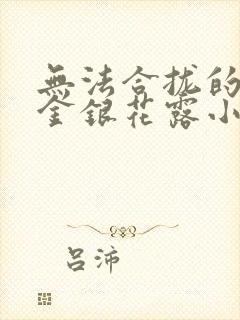 無法合拢的
金銀花露小
吕沛